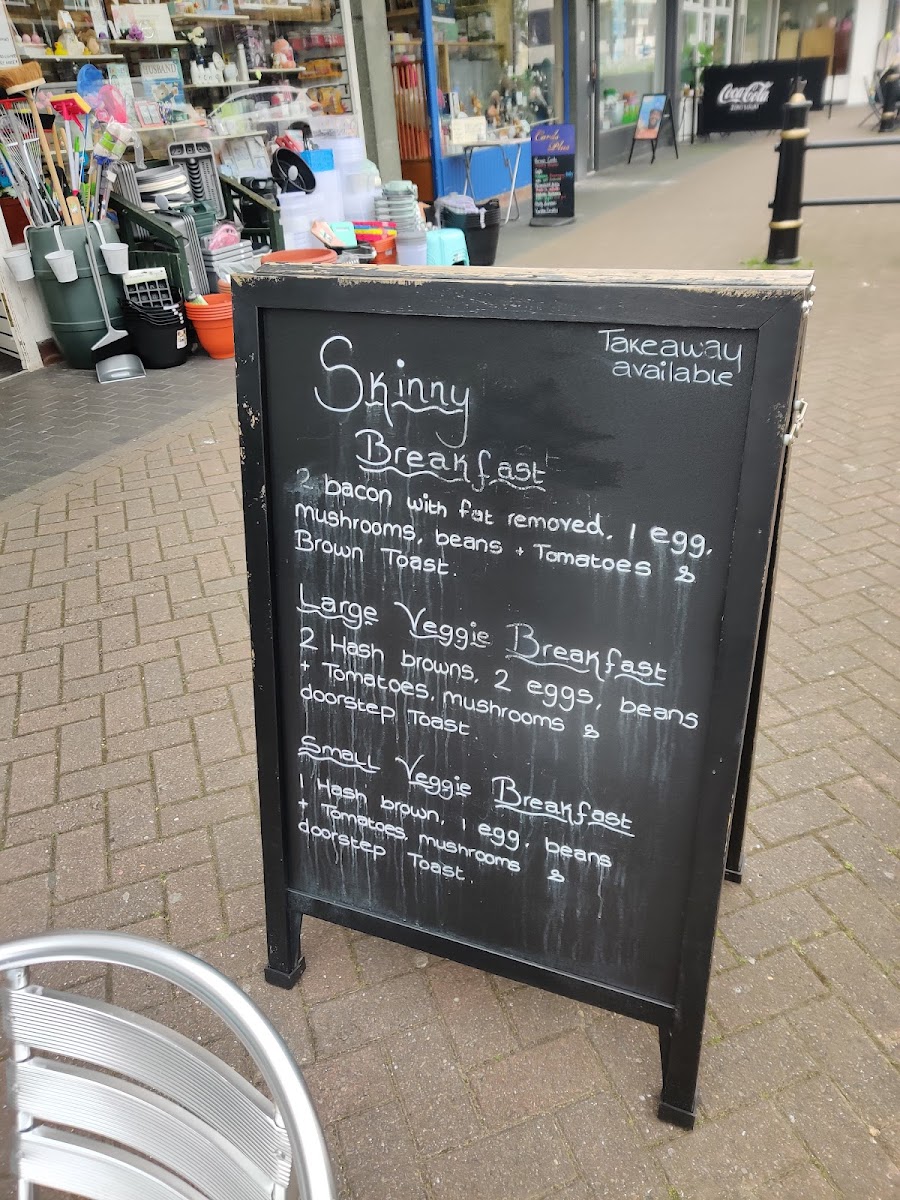 Takeaway
available
Skinny
Breakfast
2 bacon with fat removed, 1 egg,
mushrooms, beans + Tomatoes &
Brown Toast.
Large Veggie Breakfast
2 Hash browns, 2 eggs, beans
+ Tomatoes, mushrooms &
doorstep Toast.
Small Veggie Breakfast
1 Hash brown, 1 egg, beans
+ Tomatoes, mushrooms &
doorstep Toast.
Coca-Cola
Cards
Plus